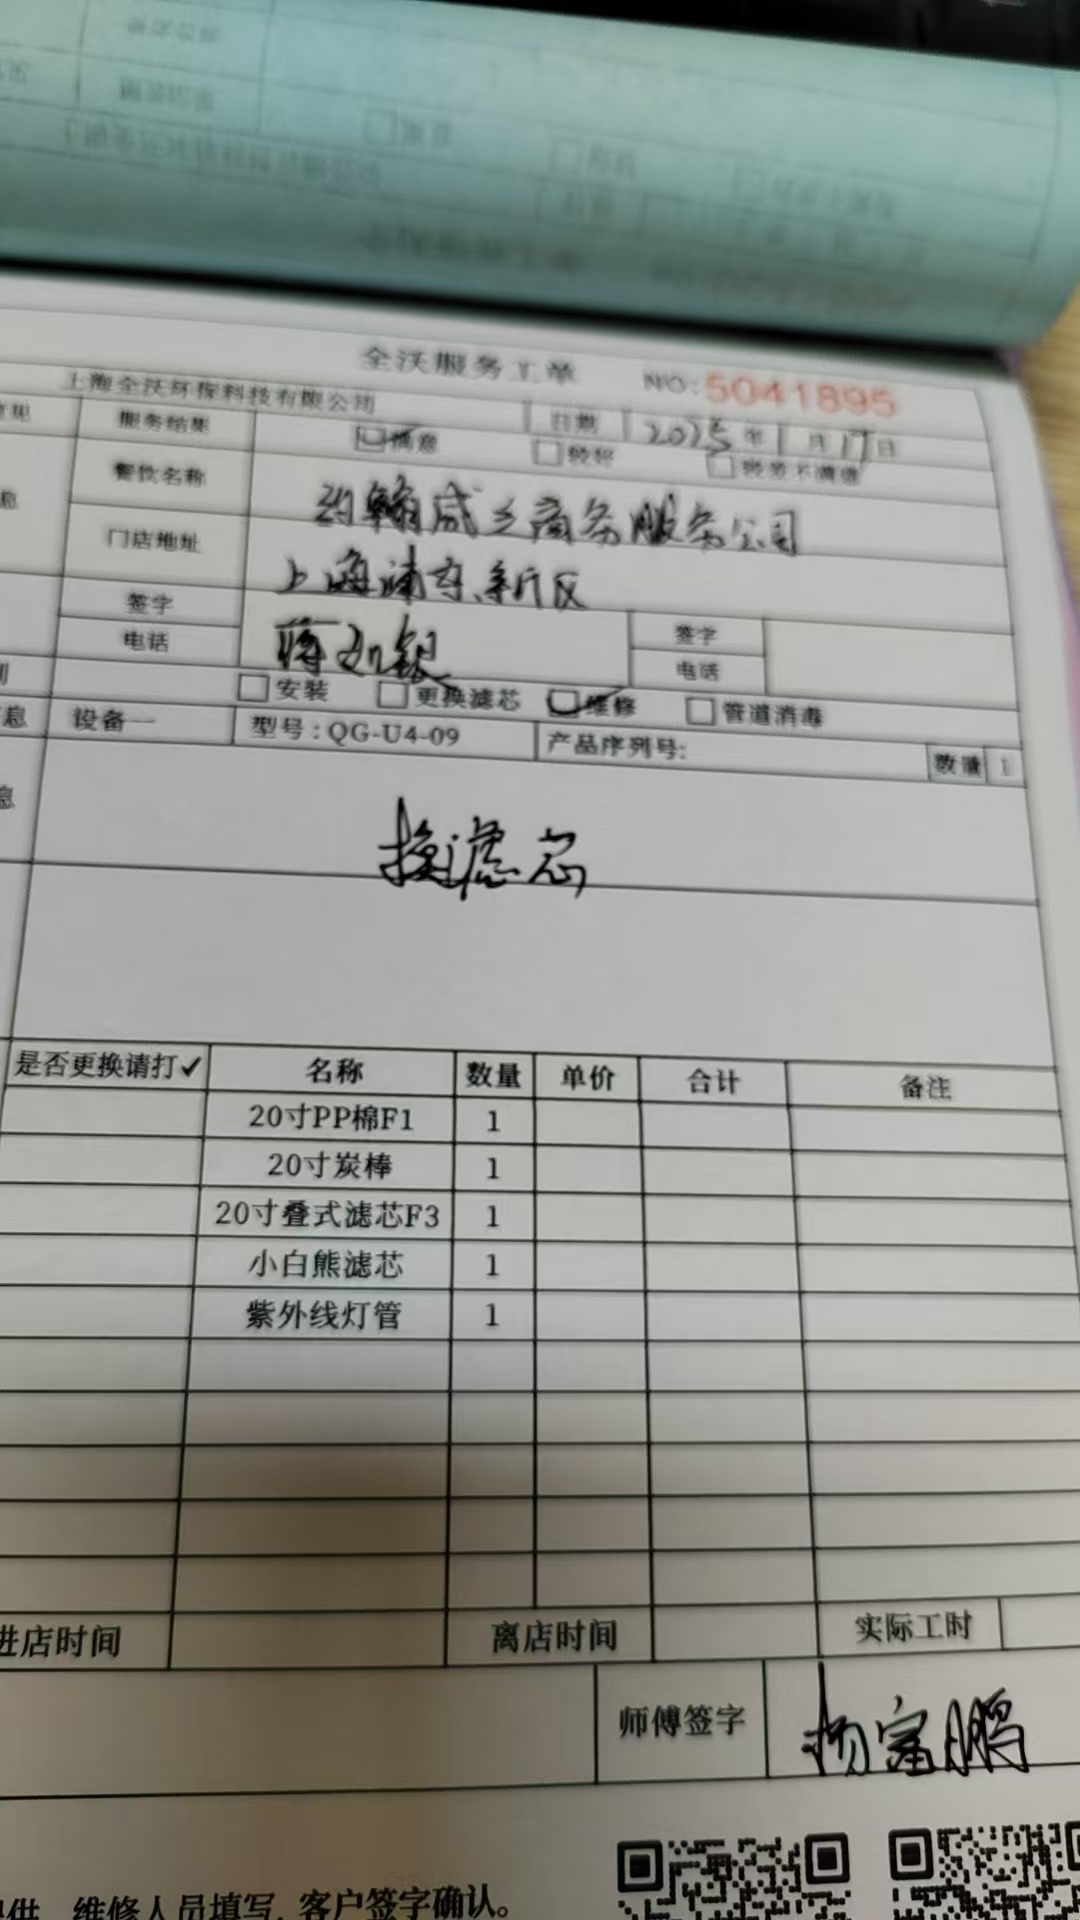 全沃服务工单 NO:5041895
上海全沃环保科技有限公司 日期 2025年1月17日
服务结果 满意 较好 较差不满意
餐饮名称 约翰威立商务服务公司
门店地址 上海浦东新区
签字 蒋 银 签字
电话 电话
安装 更换滤芯 维修 管道消毒
息 设备一 型号:QG-U4-09 产品序列号: 数量 1
息 换滤芯
是否更换请打✓ 名称 数量 单价 合计 备注
20寸PP棉F1 1
20寸炭棒 1
20寸叠式滤芯F3 1
小白熊滤芯 1
紫外线灯管 1
进店时间 离店时间 实际工时
师傅签字 杨富鹏
供 维修人员填写,客户签字确认。